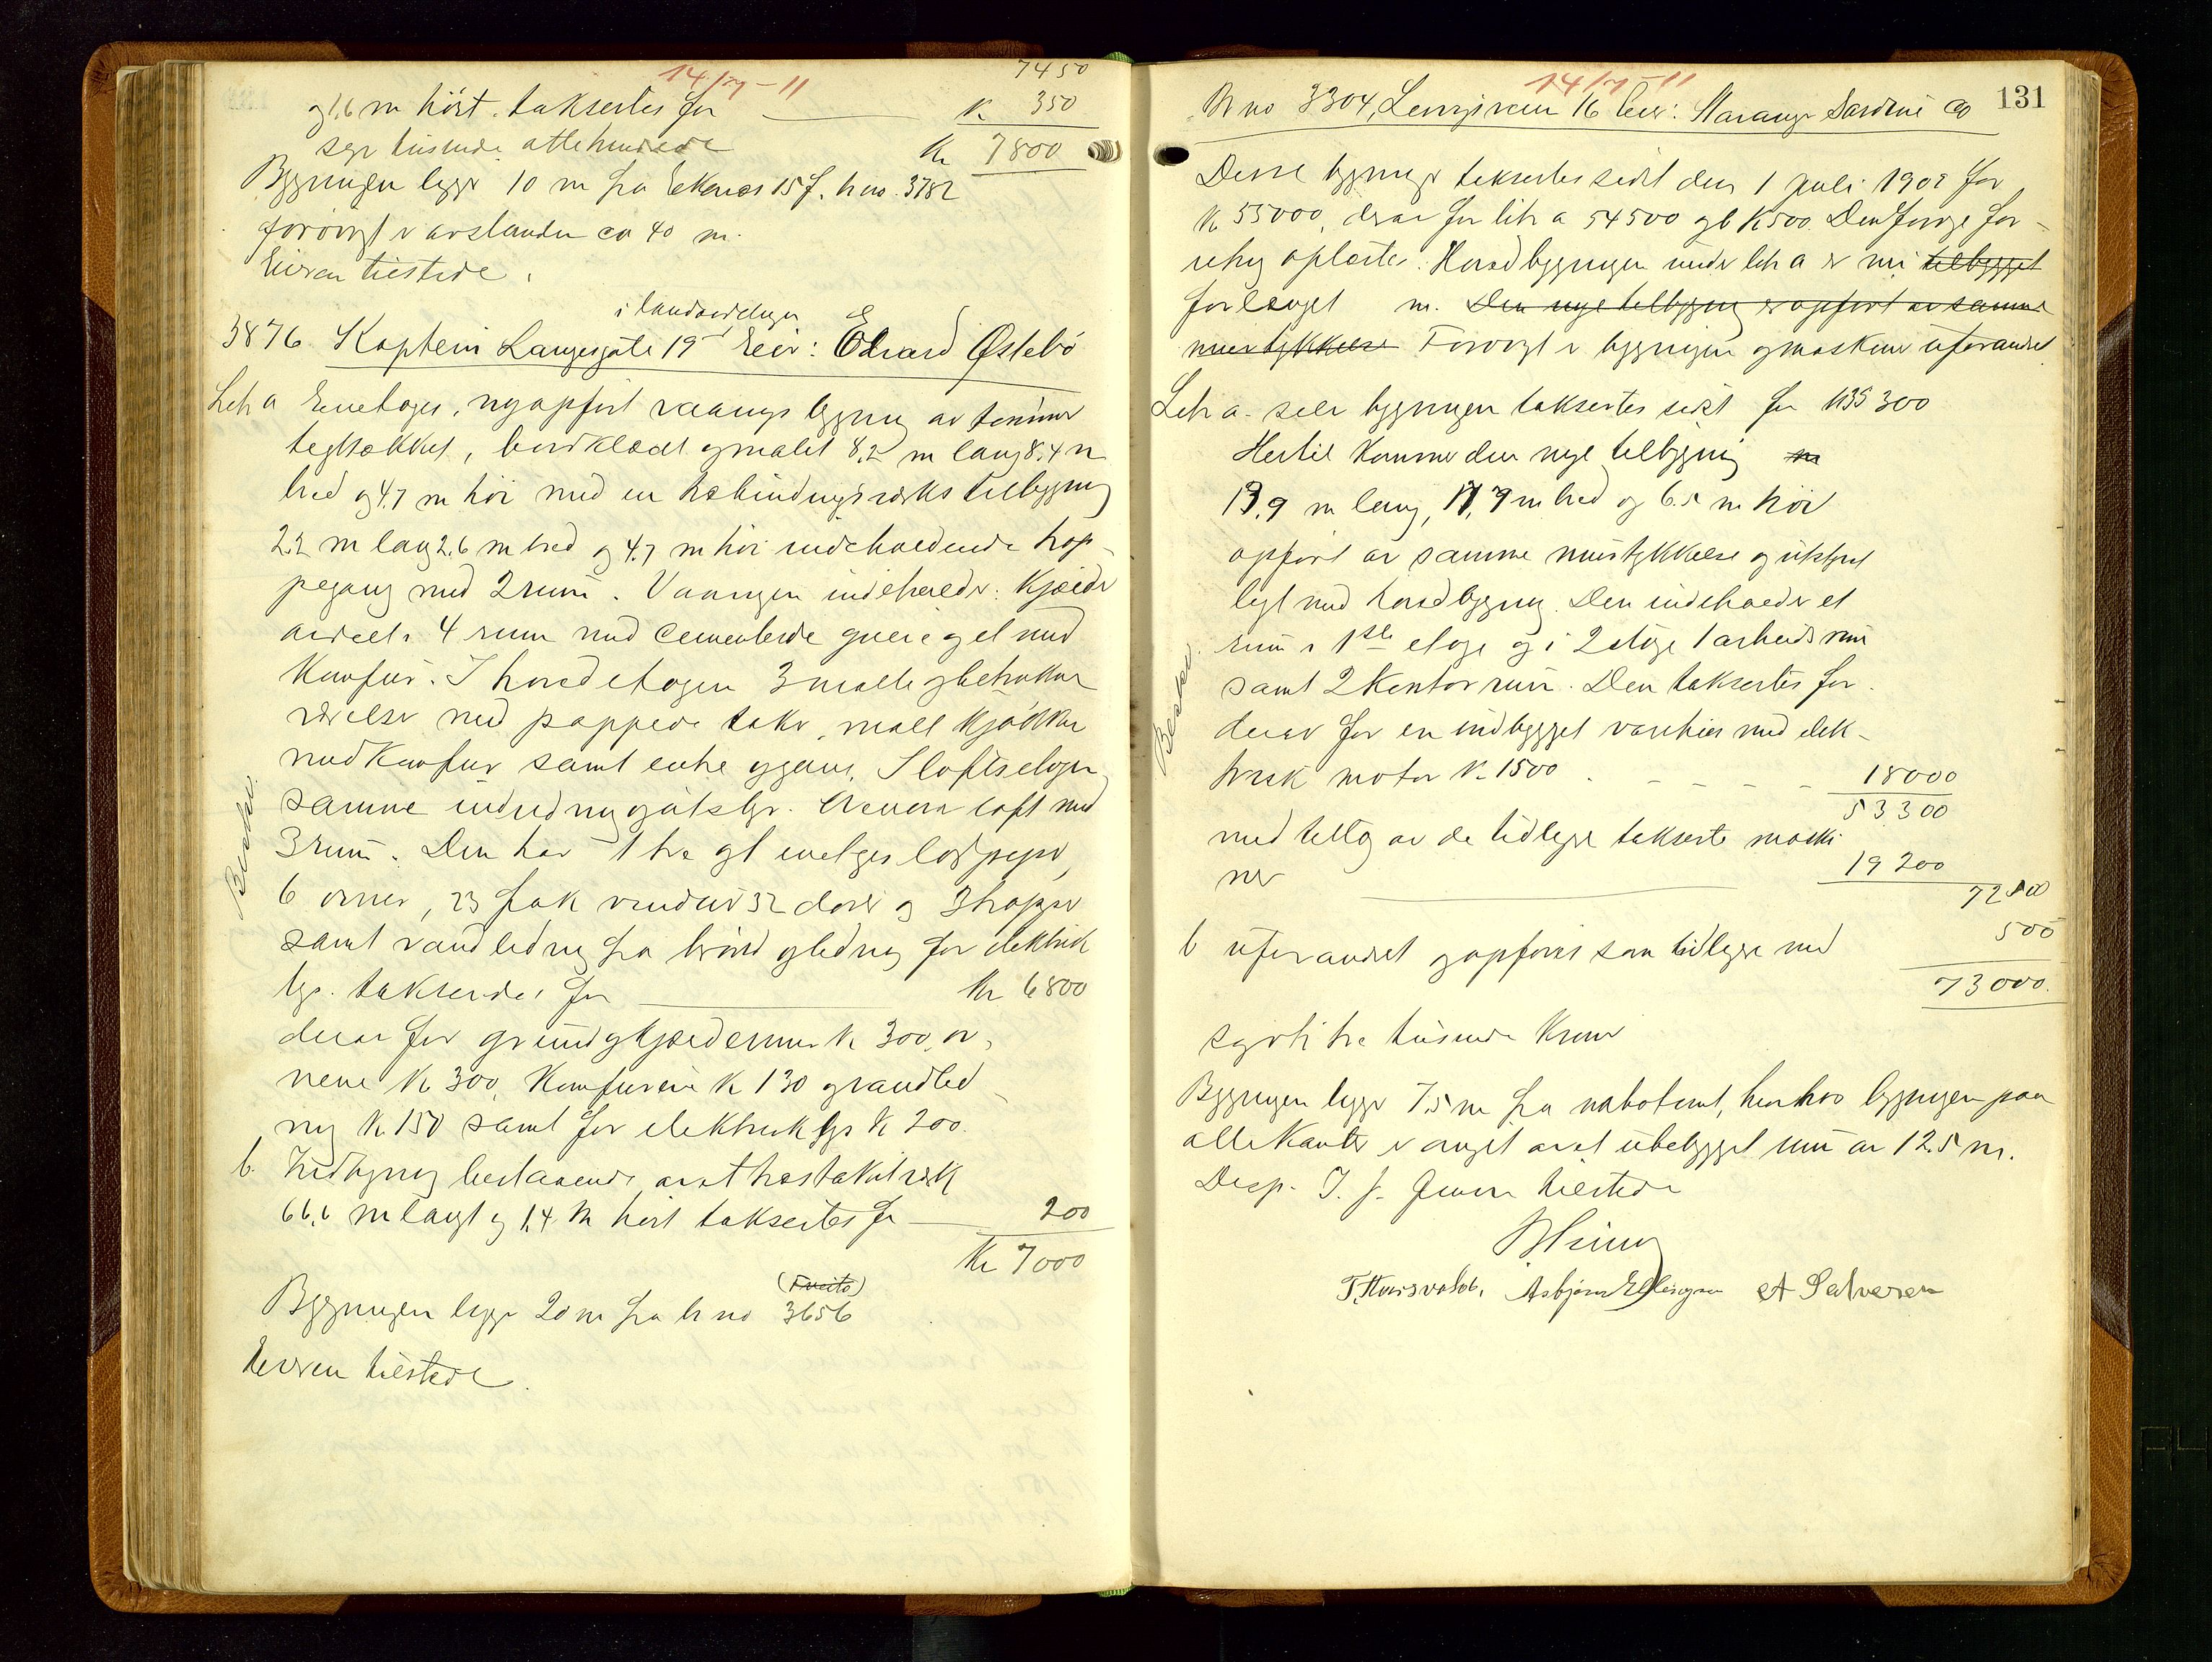 14/7-11
7450
og 1,6 m høit. taksertes for K. 350
syv tusinde ottehundrede Kr 7800
Bygningen ligger 10 m fra Ekenes 15 f. br no. 3782
forøvrigt er avstanden ca 40 m.
Eieren tilstede.
i landavdelingen
3876. Kaptein Langesgate 19 Eier: Edvard Østebø
Litr a Eenetages, nyopført vaanings bygning av tømmer
tegltækket, bordklædt og malet 8,2 m lang 8,4 m
bred og 4,7 m høi med en halvbindingsværks tilbygning
2,2 m lang 2,6 m bred og 4,7 m høi indeholdende trap-
pegang med 2 rum. Vaaningen indeholder: Kjælder
avdeelt i 4 rum med cementerede gulve og et med
Komfur. I hovedetagen 3 malte og betrukne
værelser med pappede taker, malt kjøkken
med Komfur samt entre og gang. I loftsetagen
samme indredning og utstyr. Øverst loft med
3 rum. Den har 1 tre og 1 enetages løspiper,
6 ovner, 23 fak vinduer 32 dører og 3 trapper
samt vandledning fra brønd og ledning for elektrisk
lys. taksertes for Kr 6800
derav for grund og kjældermur K 300, ov-
nene Kr 300, Komfurene K 130 og vandled-
ning K. 150 samt for elektrisk lys K 200.
b. Utbygning bestaaende av et træstakitværk
66,6 m langt og 1,4 m høit taksertes for 200
Kr 7000
(Tveito)
Bygningen ligger 20 m fra br no 3656
Eieren tilstede.
Besteen.
14/7-11
131
Br no 3304, Lervigsveien 16 Eier: Stavanger Sardine Co
Disse bygninger taksertes sidst den 1 Juli 1909 for
K 55000, derav for litr a 54500 og b K 500. Den forrige for-
retning oplæstes. Hovedbygningen under litr a er nu tilbygget
forlænget m. Den nye tilbygning er opført av samme
murtykkelse Forøvrigt er bygningen og maskiner uforandret
Litr a. selve bygningen taksertes sidst for K 35 300
Hertil kommer den nye tilbygning m
19,9 m lang, 17,9 m bred og 6.5 m høi
opført av samme murtykkelse og utstyret
ligt med hovedbygning. Den indeholder et
rum i 1ste etage og i 2 etage 1 arbeidsrum
samt 2 Kontorrum. Den taksertes for
derav for en indbygget vareheis med elek-
trisk motor K. 1500 . - - - - 18000
53300
med tillæg av de tidligere takserte maski-
ner 19200
72500
b uforandret og opføres som tidligere med 500
73000.
sytti tre tusinde kroner
Bygningen ligger 7,5 m fra nabotomt, hvorhos bygningen paa
alle kanter er omgit av et ubebygget rum av 12.5 m.
Disp. J. J. Jensen tilstede
T. Thorsvaldsb. Asbjørn Ellingsen A Salvesen